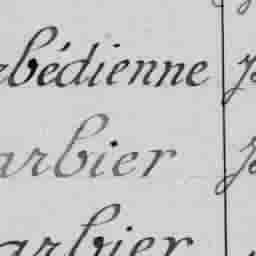 rbédienne
arbier
arbier